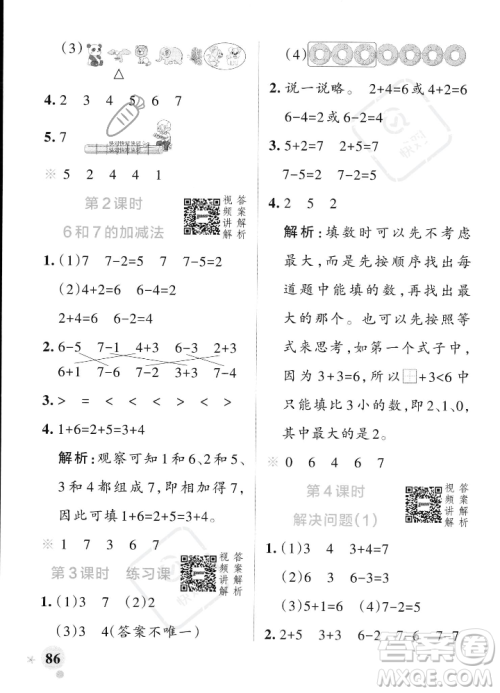 (3)
4. 2 3 4 5 7 7
5. 7
※ 5 2 4 4 1
第2课时
6和7的加减法
视频讲解
答案解析
1. (1)7 7-2=5 7-5=2
(2)2+4=6 6-2=4
2+4=6 6-4=2
2. 6-5 7-1 4+3 6-3 2+3
6+1 7-6 7-2 2+4 7-4
3. > = < < < > <
4. 1+6=2+5=3+4
解析:观察可知1和6、2和5、
3和4都组成7,所以加起来
都等于7。因此可以填1+6=
2+5=3+4。
※ 1 7 3 6 7
第3课时 练习课
视频讲解
答案解析
1. (1)3 7 (2)3 6
(3)3 4(答案不唯一)
86
(4)
2. 说一说略。 2+4=6或4+2=6
6-4=2或6-2=4
3. 5+2=7 2+5=7 7-2=5
7-5=2
4. 2 5 2
解析:填数时可以先不考虑
最大,而是先按照顺序把每
道题中能填的数,再找出最
大的那个。也可以先按照等
式来思考,如第一个式子中,
因为3+3=6,所以+3<6中
只能填比3小的数,即2,1,0,
其中最大的是2。
※ 0 6 4 6 7
第4课时
解决问题(1)
视频讲解
答案解析
1. (1)3 4 3+4=7
(2)5 1 5+1=6
(3)4 2 4+2=6
2. 2+5 1+5 6-2 7-0 7-7
答案圈